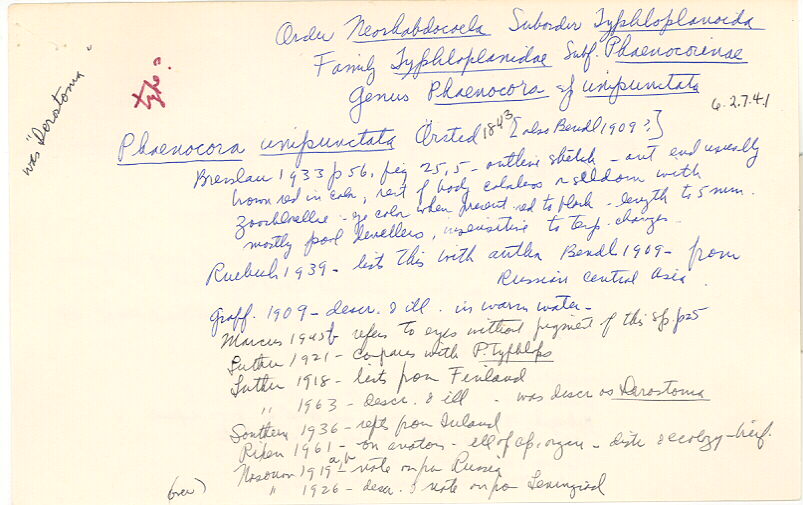 Order Neorhabdocoela Suborder Typhloplanoida
Family Typhloplanidae Subf. Phaenocorinae
Genus Phaenocora of unipunctata
was "Derostoma"
type?
6.2.7.4.1
Phaenocora unipunctata Örsted 1843 [also Bendl 1909?]
Bresslau 1933 p 56, fig 25,5 - outline sketch - ant end usually
brown red in color, rest of body colorless or seldom with
zoochlorellae - eye color when present red to black - length to 5 mm.
mostly pool dwellers, insensitive to temp. changes -
Ruebush 1939 - lists this with author Bendl 1909 - from
Russian Central Asia
Graff. 1909 - descr. & ill. in warm water -
Marcus 1945b refers to eyes without pigment of this sp p25
Luther 1921 - compares with P. typhlops
Luther 1918 - lists from Finland
" 1963 - descr. & ill - was descr as Derostoma
Southern 1936 - repts from Ireland
1961 - on - ill of op. organs - distr & ecology - brief.
Nasonov 1919 a, b - note on from Russia
(over) " 1926 - descr. & note on from Leningrad